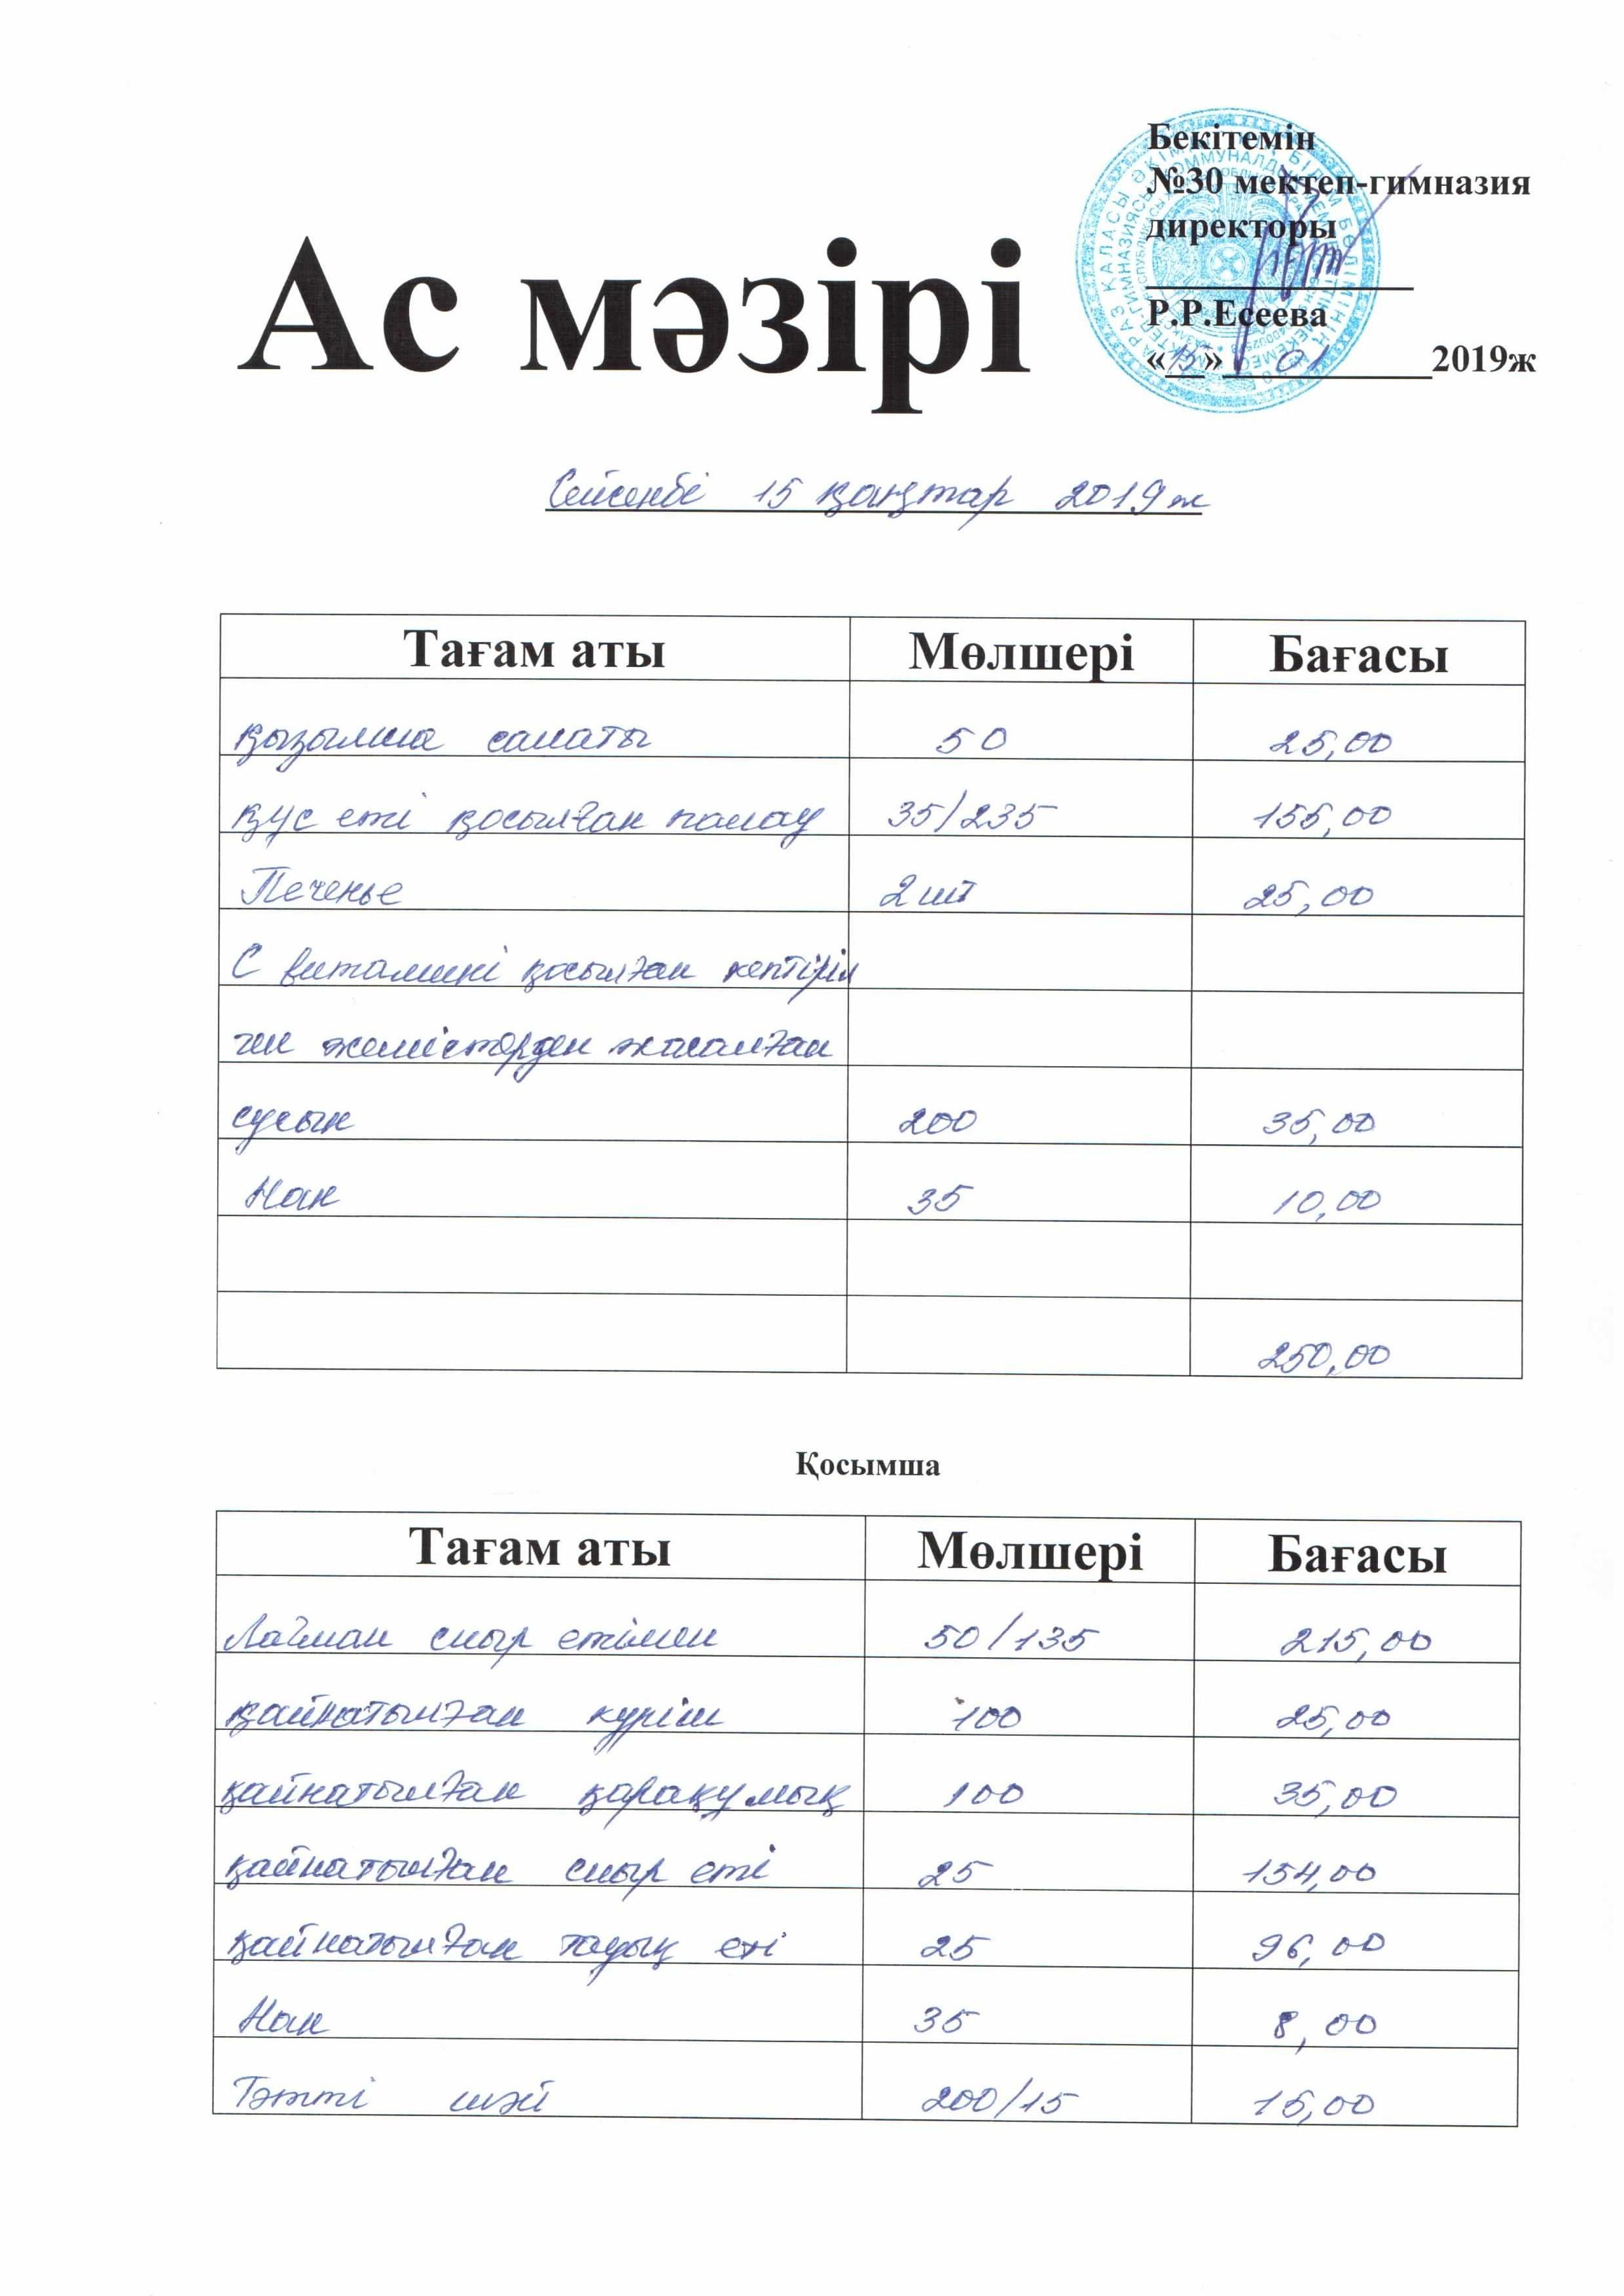 Бекітемін
№30 мектеп-гимназия
директоры
Р.Р.Есеева
«15» 01 2019ж
Ас мәзірі
Сейсенбі 15 қаңтар 2019ж
Тағам аты Мөлшері Бағасы
Қызылша салаты 50 25,00
Құс еті қосылған палау 35/235 155,00
Печенье 2 шт 25,00
С витамині қосылған кептіріл
ген жемістерден жасалған
сусын 200 35,00
Нан 35 10,00
250,00
Қосымша
Тағам аты Мөлшері Бағасы
Лағман сиыр етімен 50/135 215,00
қайнатылған күріш 100 25,00
қайнатылған қарақұмық 100 35,00
қайнатылған сиыр еті 25 154,00
қайнатылған тауық еті 25 96,00
Нан 35 8,00
Тәтті шәй 200/15 15,00